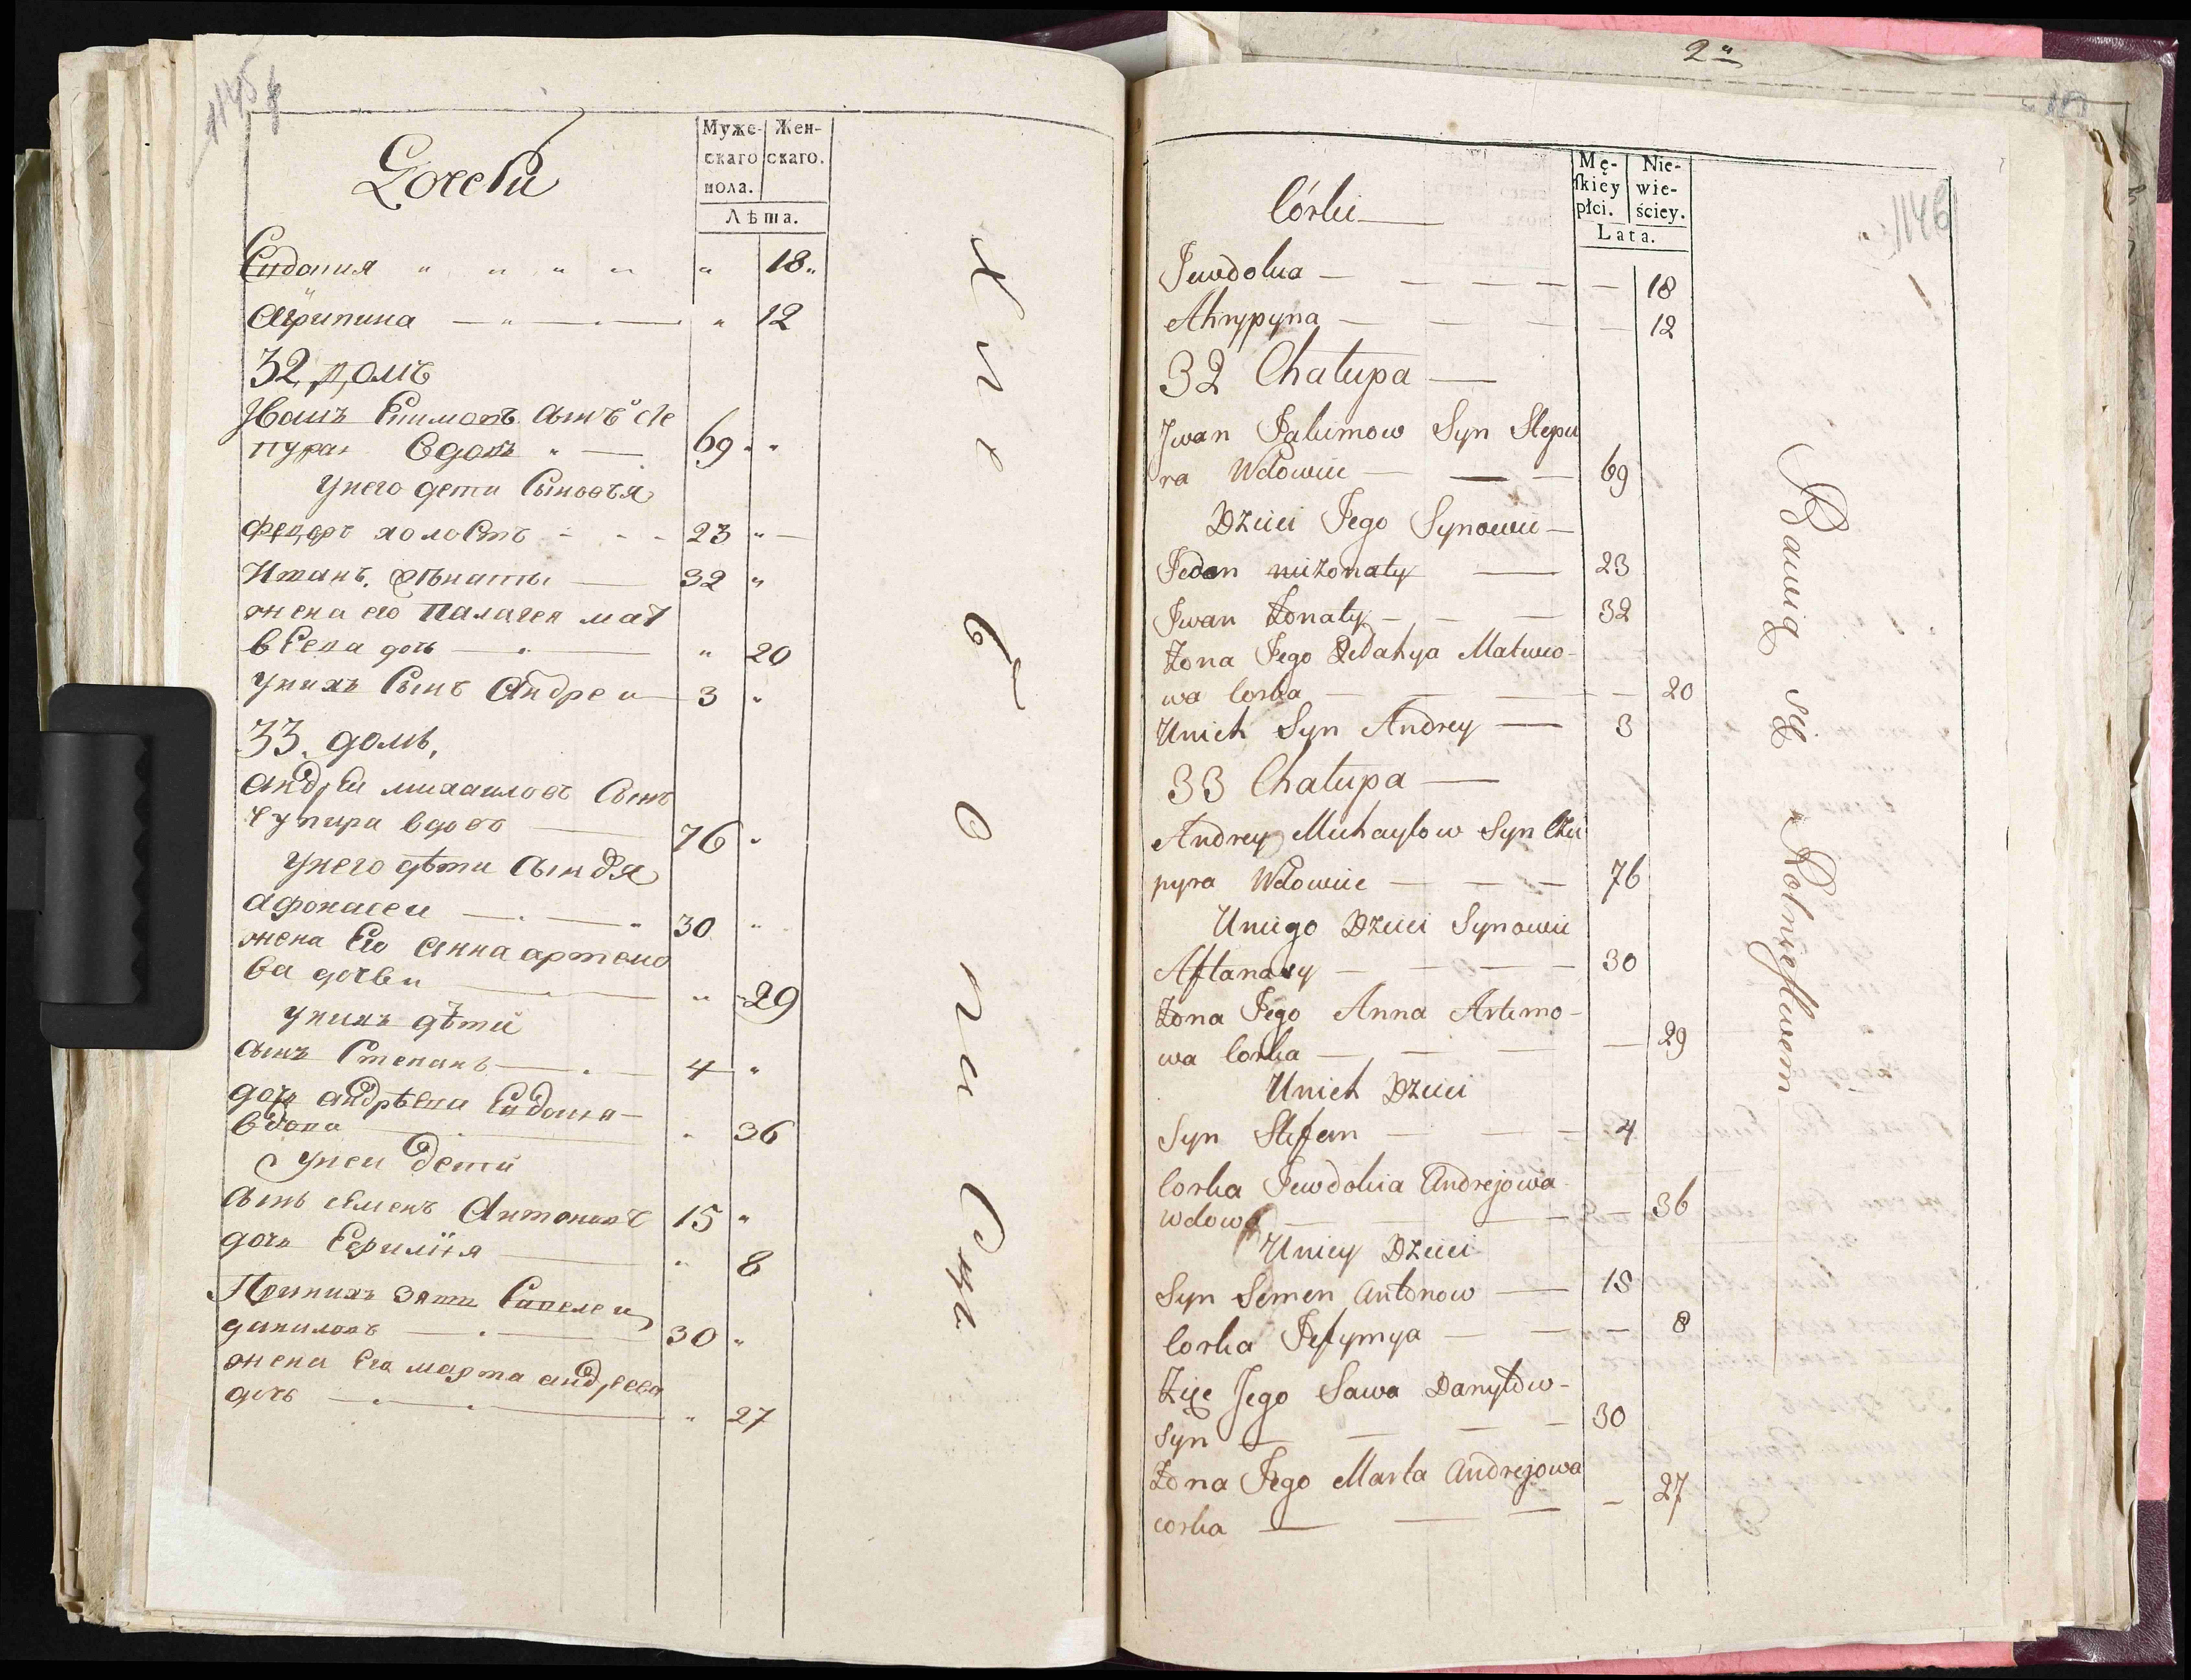 1145
Дочери
Муже-
скаго
пола.
Жен-
скаго.
Лѣта.
18
Агрипина 12
32 домъ
Иванъ сынъ Сле
пура вдовъ 69
у него дети сыновья
Федоръ холостъ 23
Иванъ женаты 32
жена его Палагея мат
веева дочь 20
у нихъ сынъ Андреи 3
33 домъ,
Андреи михаиловъ сынъ
Чупира вдовъ 76
у него дѣти сыновя
Афонасеи 30
жена Ево Анна артемо
ва дочь 29
у нихъ дѣти
сынъ Степанъ 4
дочь андрѣева
вдова 36
у неи дети
сынъ семенъ Антоновъ 15
дочь 8
зять
даниловъ 30
жена Ево марта андреева
дочь 27
2
1146
Mę-
ſkiey
płci.
Nie-
wie-
ściey.
Lata.
Córki
Jewdokia 18
Ahrypyna 12
32 Chałupa
Jwan Jakimow Syn Slepu
ra Wdowiec 69
Dzieci Jego Synowie
Fedor nieżonaty 23
Jwan Żonaty 32
Żona Jego Matweo-
wa Corka 20
Unich Syn Andrey 3
33 Chałupa
Andrey Michayłow Syn Czu
pyra Wdowiec 76
Uniego Dzieci Synowie
Aftanasy 30
Żona Jego Anna Artemo-
wa Corka 29
Unich Dzieci
Syn Stefan 4
Corka Jewdokia Andrejowa
Wdowa 36
Uniey Dzieci
Syn Semen Antonow 15
Corka Jefymya 8
Zięć Jego Sawa Danyłow-
Syn 30
Żona Jego Marta Andrejowa
corka 27
Bawią się Rolnictwem